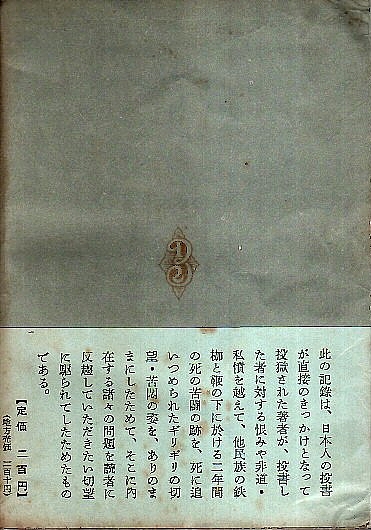 此の記録は、日本人の投書
が直接のきっかけとなって
投獄された著者が、投書し
た者に対する恨みや非道・
私憤を越えて、他民族の鉄
柳と鞭の下に於ける二年間
の死の苦闘の跡を、死に追
いつめられたギリギリの切
望・苦闘の姿を、ありのま
まにしたためて、そこに内
在する諸々の問題を読者に
反趨していただきたい切望
に駆られてしたためたもの
である。
【定価 二百円】
(地方売価 二百十円)